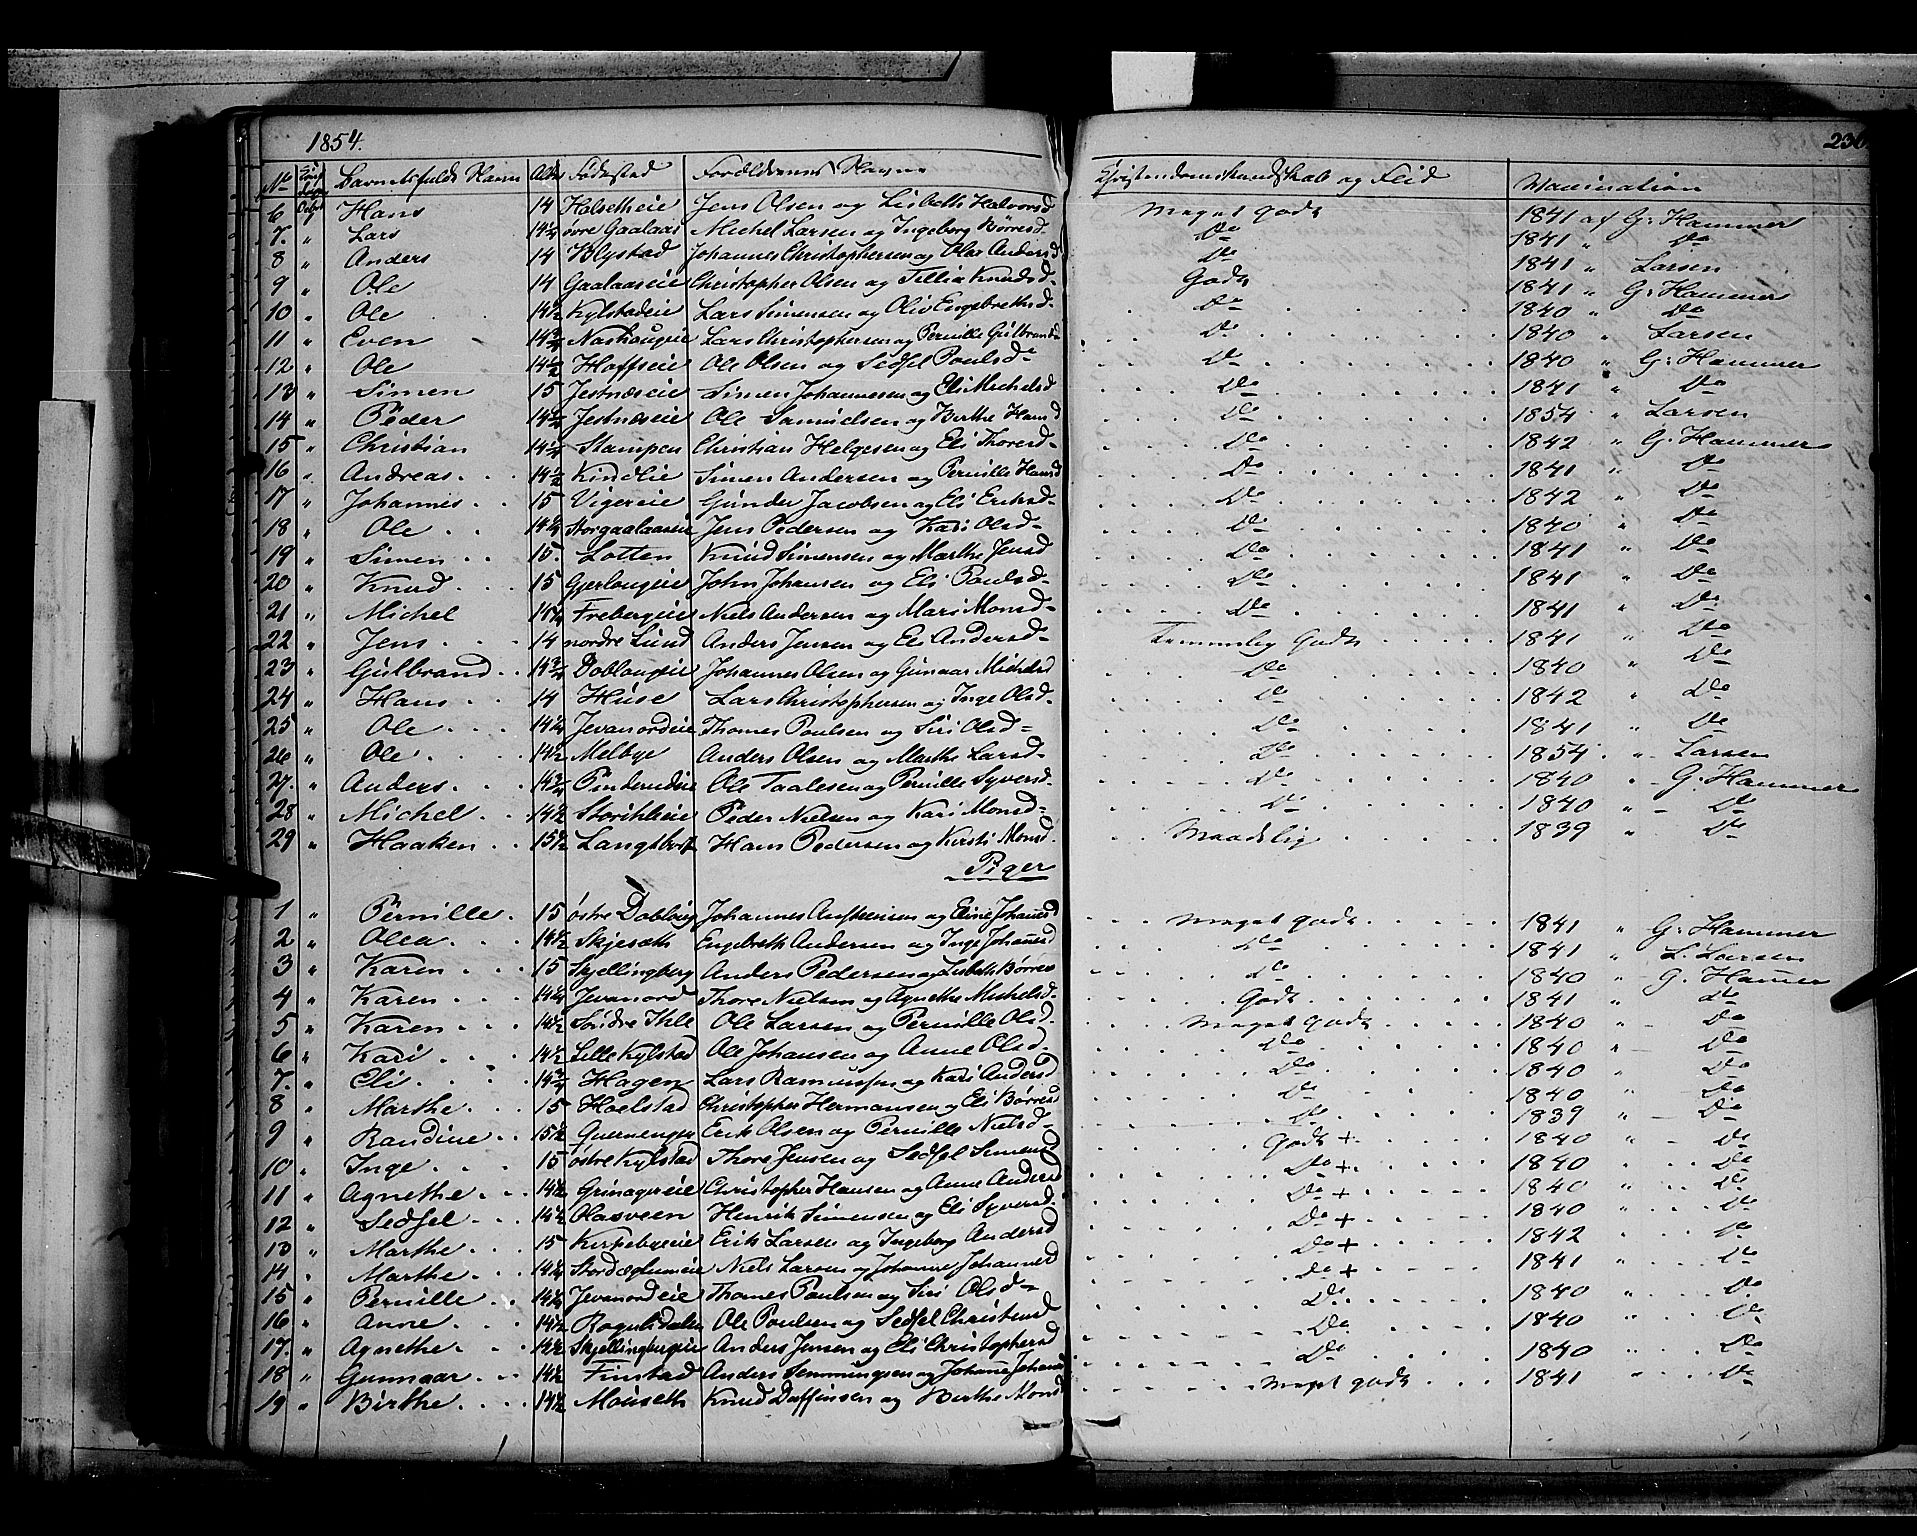 1854.
236.
No Barnets fulde Navn Alder Fødested Forældrenes Navne Christendomskundskab og Flid Vaccination
6 Hans 14 Halsetheie Jens Olsen og Lisbeth Halvorsd Meget Godt 1841 af G: Hammer
7. " Lars 14¼ øvre Gaalaas Michel Larsen og Ingeborg Børresd. Do 1841 " Do
8 " Anders 14 Blystad Johannes Christophersen og Olea Andersd Do 1841 " Larsen
9 " Ole 14 Gaalaaseie Christopher Olsen og Tillia Knudsd. Godt 1841 " G: Hammer
10 " Ole 14½ Kylstadeie Lars Simensen og Olia Engebrethsd. Do 1840 " Do
11 " Even 14¾ Nashougeie Lars Christophersen og Pernille Gulbrandsd Do 1840 " Larsen
12 " Ole 14½ Hoffseie Ole Olsen og Sedsel Poulsd Do 1840 " G: Hammer
13 " Simen 15 Jestnæseie Simen Johannesen og Eli Michelsd Do 1841 " Do
14 " Peder 14½ Jestnæseie Ole Samuelsen og Birthe Hansd Do 1854 " Larsen
15 " Christian 14½ Stampen Christian Helgesen og Eli Thoresd Do 1842 " G: Hammer
16 " Andreas 14½ Kindlie Simen Andersen og Pernille Hansd Do 1841 " Do
17 " Johannes 15 Vigereie Gunder Jacobsen og Eli Eriksd Do 1842 " Do
18 " Ole 14¼ Storgaalaaseie Jens Pedersen og Kari Olsd Do 1840 " Do
19 " Simen 15 Lotten Knud Simensen og Marthe Jensd Do 1841 " Do
20 " Knud 15 Gjerlougeie John Johansen og Eli Poulsd Do 1841 " Do
21 " Michel 14¼ Frebergeie Niels Andersen og Mari Monsd Do 1841 " Do
22 " Jens 14 nordre Lund Anders Jensen og Eli Andersd Temmelig Godt 1841 " Do
23 " Gulbrand 14¾ Doblougeie Johannes Olsen og Gunaar Michelsd Do 1840 " Do
24 " Hans 14 Huse Lars Christophersen og Inge Olsd Do 1842 " Do
25 " Ole 14¼ Jevanordeie Thomes Poulsen og Siri Olsd Do 1841 " Do
26 " Ole 14½ Melbye Anders Olsen og Marthe Larsd Do 1854 " Larsen
27. " Anders 14¾ Pinderudeie Ole Taalesen og Pernille Syversd Do 1840 " G. Hammer
28 " Michel 14½ Storihleie Peder Nielsen og Kari Monsd Do 1840 " Do
29 " Haaken 15½ Langtbort Hans Pedersen og Kirsti Monsd Maadelig 1839 " Do
Piger
1 " Pernille 15 østre Dobloug Johannes Anstensen og Eline Johannesd Meget godt 1841 " G: Hammer
2 " Olea 14½ Skjeseth Engebreth Andersen og Inge Johannesd Do 1841 " L. Larsen
3 " Karen 15 Skjellingberg Anders Pedersen og Lisbeth Børresd Do 1840 " G. Hammer
4 " Karen 14¼ Jevanord Thore Nielsen og Agnethe Michelsd Godt 1841 " Do
5 " Karen 14½ Søndre Ihle Ole Larsen og Pernille Olsd Meget godt 1840 " Do
6 " Kari 14½ Lille Kylstad Ole Johansen og Anne Olsd Do 1840 " Do
7. " Eli 14¾ Hagen Lars Rasmussen og Kari Andersd Do 1840 " Do
8 " Marthe 15 Hoelstad Christopher Hermansen og Eli Børresd Do 1840 " Do
9 " Randine 15½ Quernengen Erik Olsen og Pernille Nielsd Do 1839 " Do
10 " Inge 15 østre Kylstad Thore Jensen og Sedsel Simensd Godt + 1840 " Do
11 " Agnethe 14½ Grinagereie Christopher Hansen og Anne Andersd Do + 1840 " Do
12 " Sedsel 14½ Olasveen Henrik Simensen og Eli Syversd Do + 1840 " Do
13 " Marthe 15 Kirkebyeie Erik Larsen og Ingeborg Andersd Do + 1840 " Do
14 " Marthe 14¼ Stordæhlumeie Niels Larsen og Johanne Johannesd Do + 1842 " Do
15 " Pernille 14¼ Jevanordeie Thomes Poulsen og Siri Olsd Do + 1841 " Do
16 " Anne 14½ Rognlidalen Ole Poulsen og Sedsel Christensd Do 1840 " Do
17. " Agnethe 14½ Skjellingbergeie Anders Jensen og Eli Christophersd Do 1840 " Do
18 " Gunnaar 14½ Finstad Anders Semmingsen og Johanne Johannesd Do 1840 " Do
19 " Birthe 14½ Mouseth Knud Daffinsen og Birthe Monsd Meget godt 1841 " Do